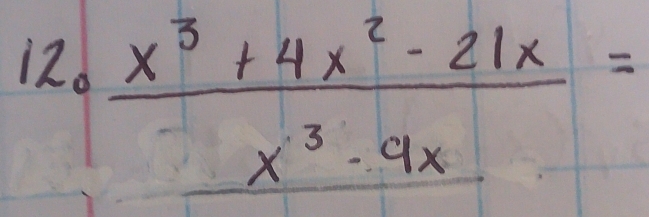 12. x³ + 4x² - 21x =
x³ - 9x